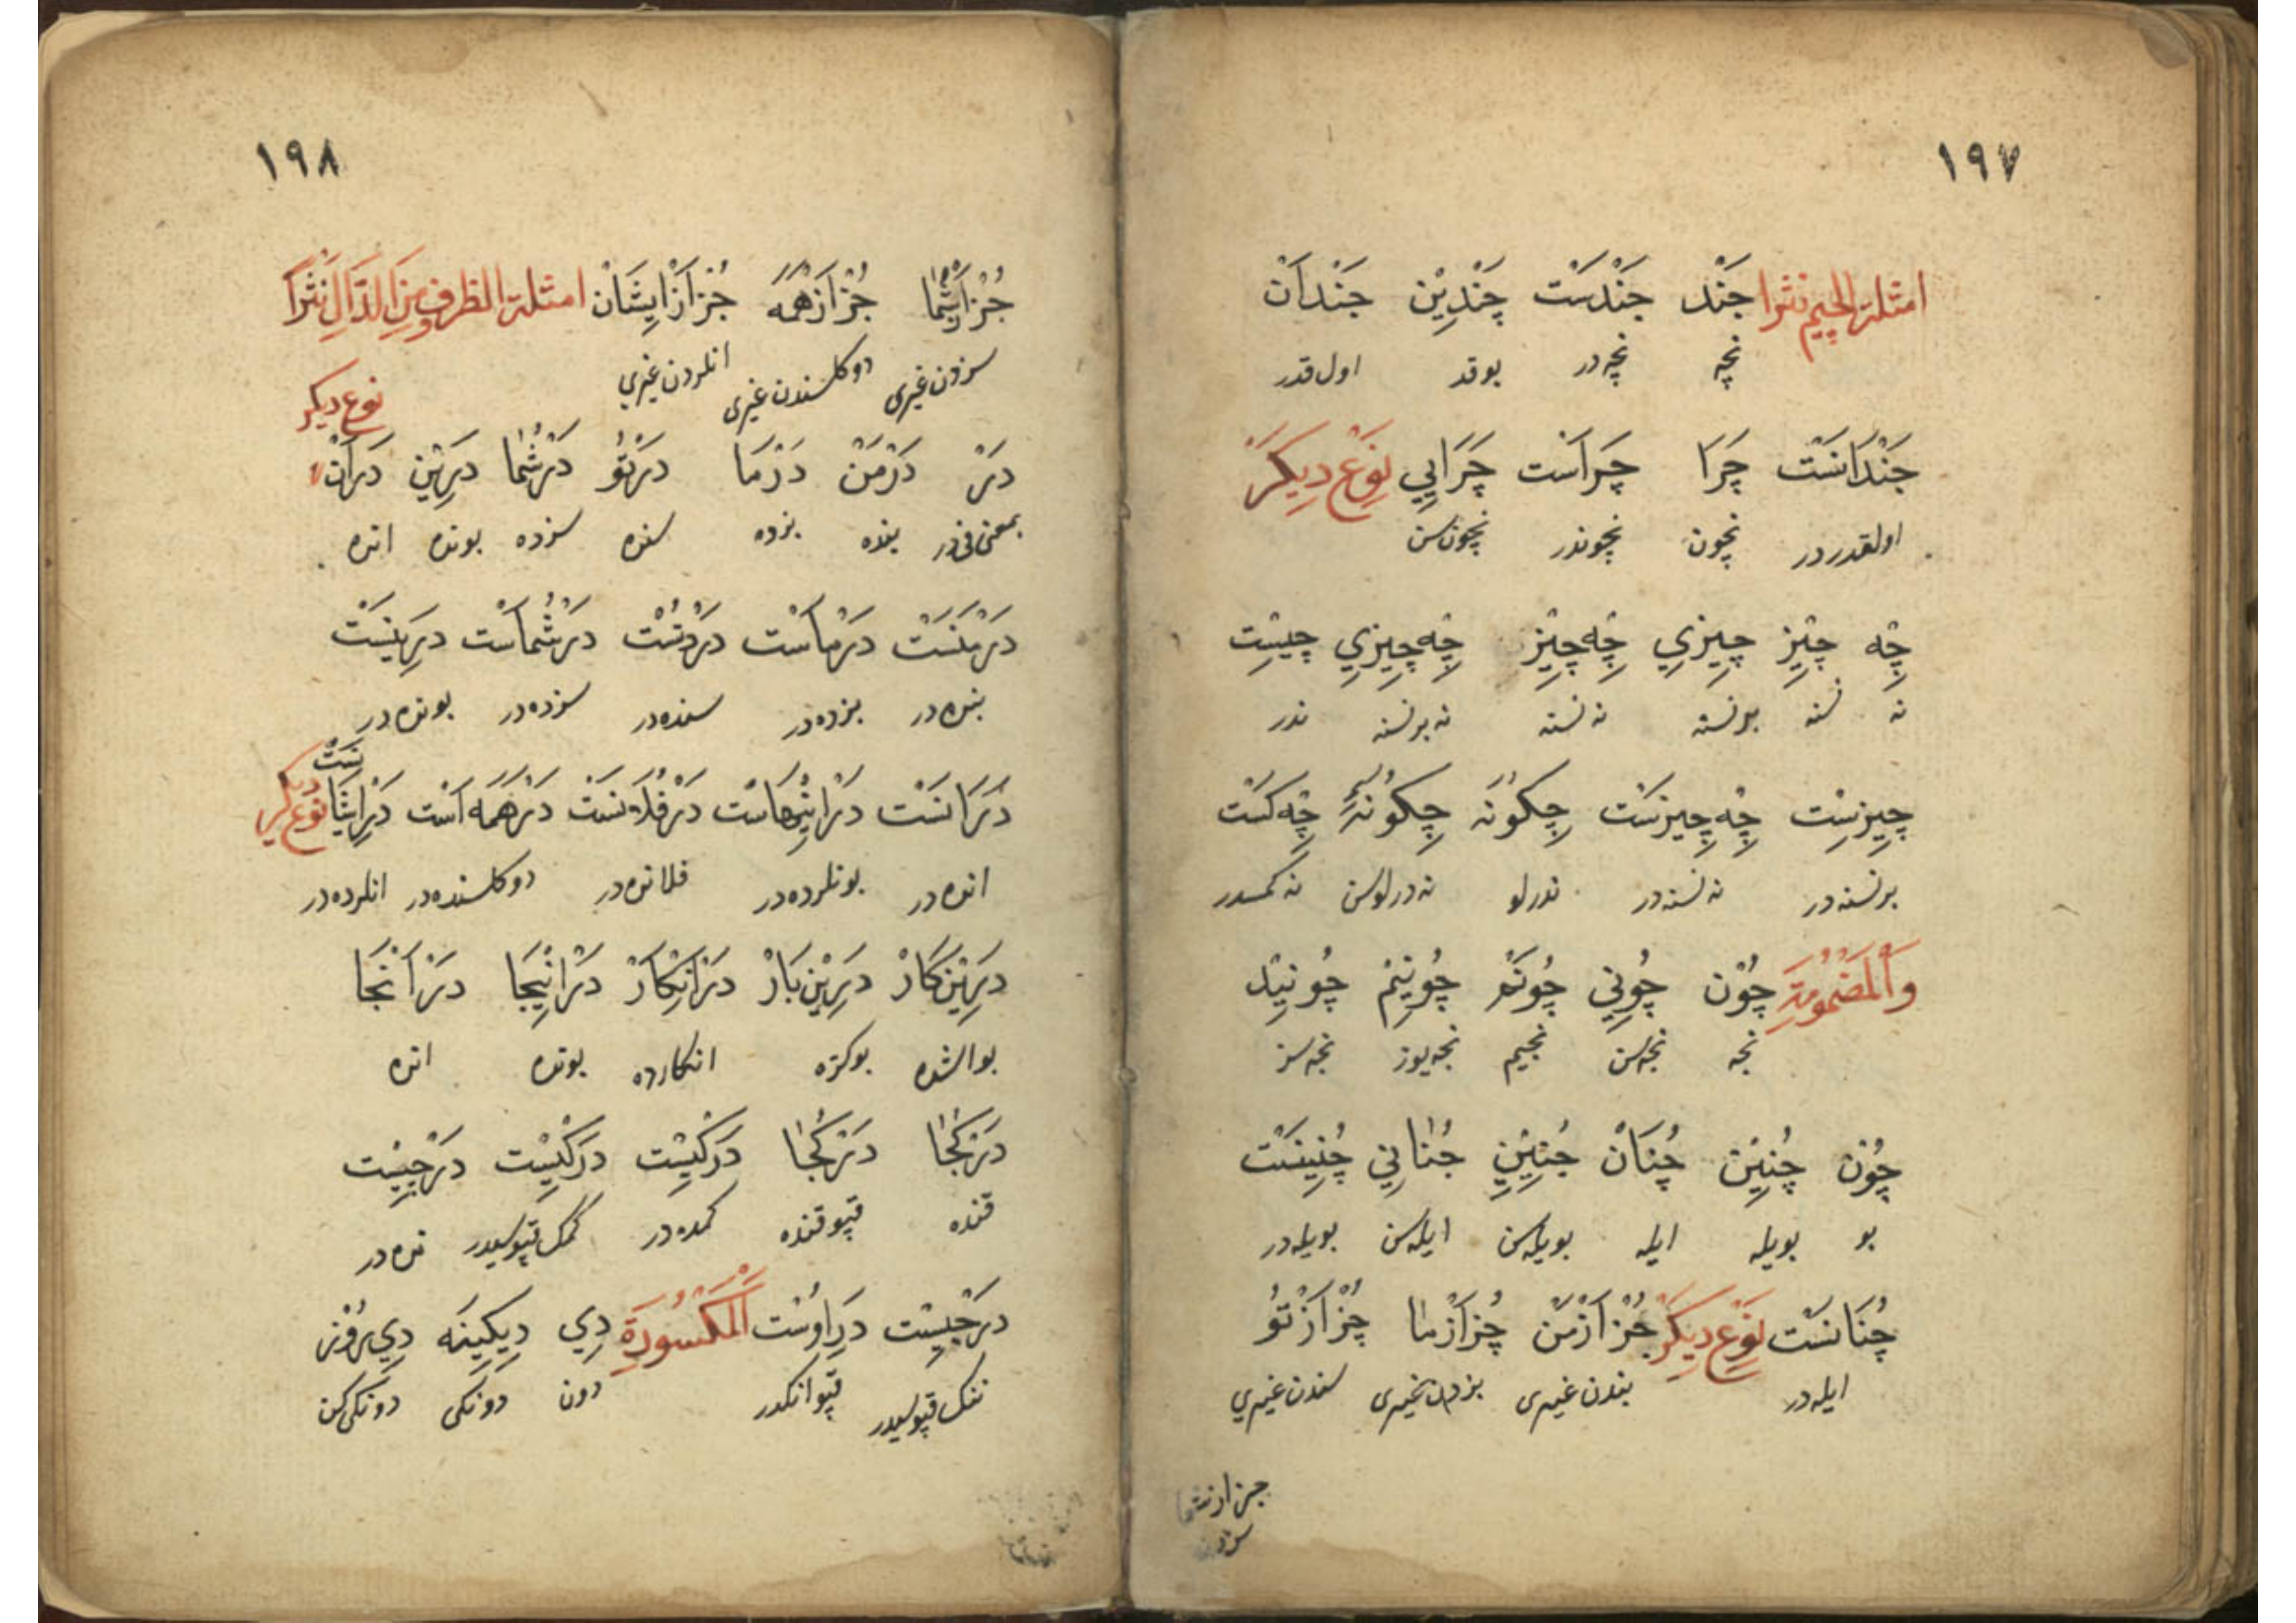 ١٩٧
امثلة الجيم نثرا جَنْد جَنْدَسْت چَنْدِيْن جَنْدَاَنْ
نچه نچه در بوقدر اول قدر
جَنْدَانَسْت چَرَا چَراَسْت چَرَايِي نَوْع دِيكَرْ
اولقدردر نچون نچوندر نچون سن
چِه چِيْز چِيزِي چِه چِيْز چِه چِيزِي چِيسْت
نه نسنه برنسنه نه نسنه نه برنسنه ندر
چِيزسْت چِه چِيزسْت چِكُونَه چِكُونَهٔ چِه كَسْت
برنسنه در نه نسنه در ندرلو نه درلوسن نه كمسدر
وَالْمَضْمُومَةِ چُوْن چُونِي چُونَمْ چُونِيْم چُونِيْد
نجه نجه سن نجيم نجه يوز نجه سز
چُوْن چُنِيْن چُنَانْ چُنِيْنِي چُنَانِي چُنِينَسْت
بو بويله ايله بويله سن ايله سن بويله در
چُنَانَسْت نَوْع دِيكَرْ جُزْ اَزْ مَنْ جُز اَزْ مَا جُزْ اَزْ تُو
ايله در بندن غيري بزدن غيري سندن غيري
جز از شما
سزدن
١٩٨
جُزْ اَزْ شُمَا جُزْ اَزْ هَمَه جُزْ اَزْ اِيشَانْ امثلة الظروف مِنَ الدَّالِ نَثْراً
سزدن غيرى دوكلسندن غيرى انلردن غيري
نوع ديكر
دَرْ دَرْ مَنْ دَرْ مَا دَرْ تُو دَرْ شُمَا دَرِيْن دَرَاَنْ
بمعنى فى در بنده بزده سنده سزده بونده انده
دَرْ مَنَسْت دَرْ مَاسْت دَرْ تُسْت دَرْ شُمَاسْت دَرِينَسْت
بنده در بزده در سنده در سزده در بونده در
دَرَانَسْت دَرْ اينهاسْت دَرْ فُلَانَسْت دَرْ هَمَه اَسْت دَرْ اِيشَانَسْت نوع ديكر
انده در بونلرده در فلانده در دوكلسنده در انلرده در
دَرِيْن كَارْ دَرِيْن بَارْ دَرْ اَنْكَارْ دَرْ اِنِيجَا دَرْ اَنْجَا
بوالشده بوكزه انكارده بونده انده
دَرْ كُجَا دَرْ كُجَا دَرْ كِيسْت دَرِ كِيسْت دَرْ چِيسْت
قنده قپو قنده كمده در كمك قپوسيدر نده در
دَرِ چِيسْت دَرِ اوسْت اَلْمَكْسُورَةِ دِي دِيكِينَه دِي رُوْز
ننك قپوسيدر قپو انكدر دون دونكى دونكى كن